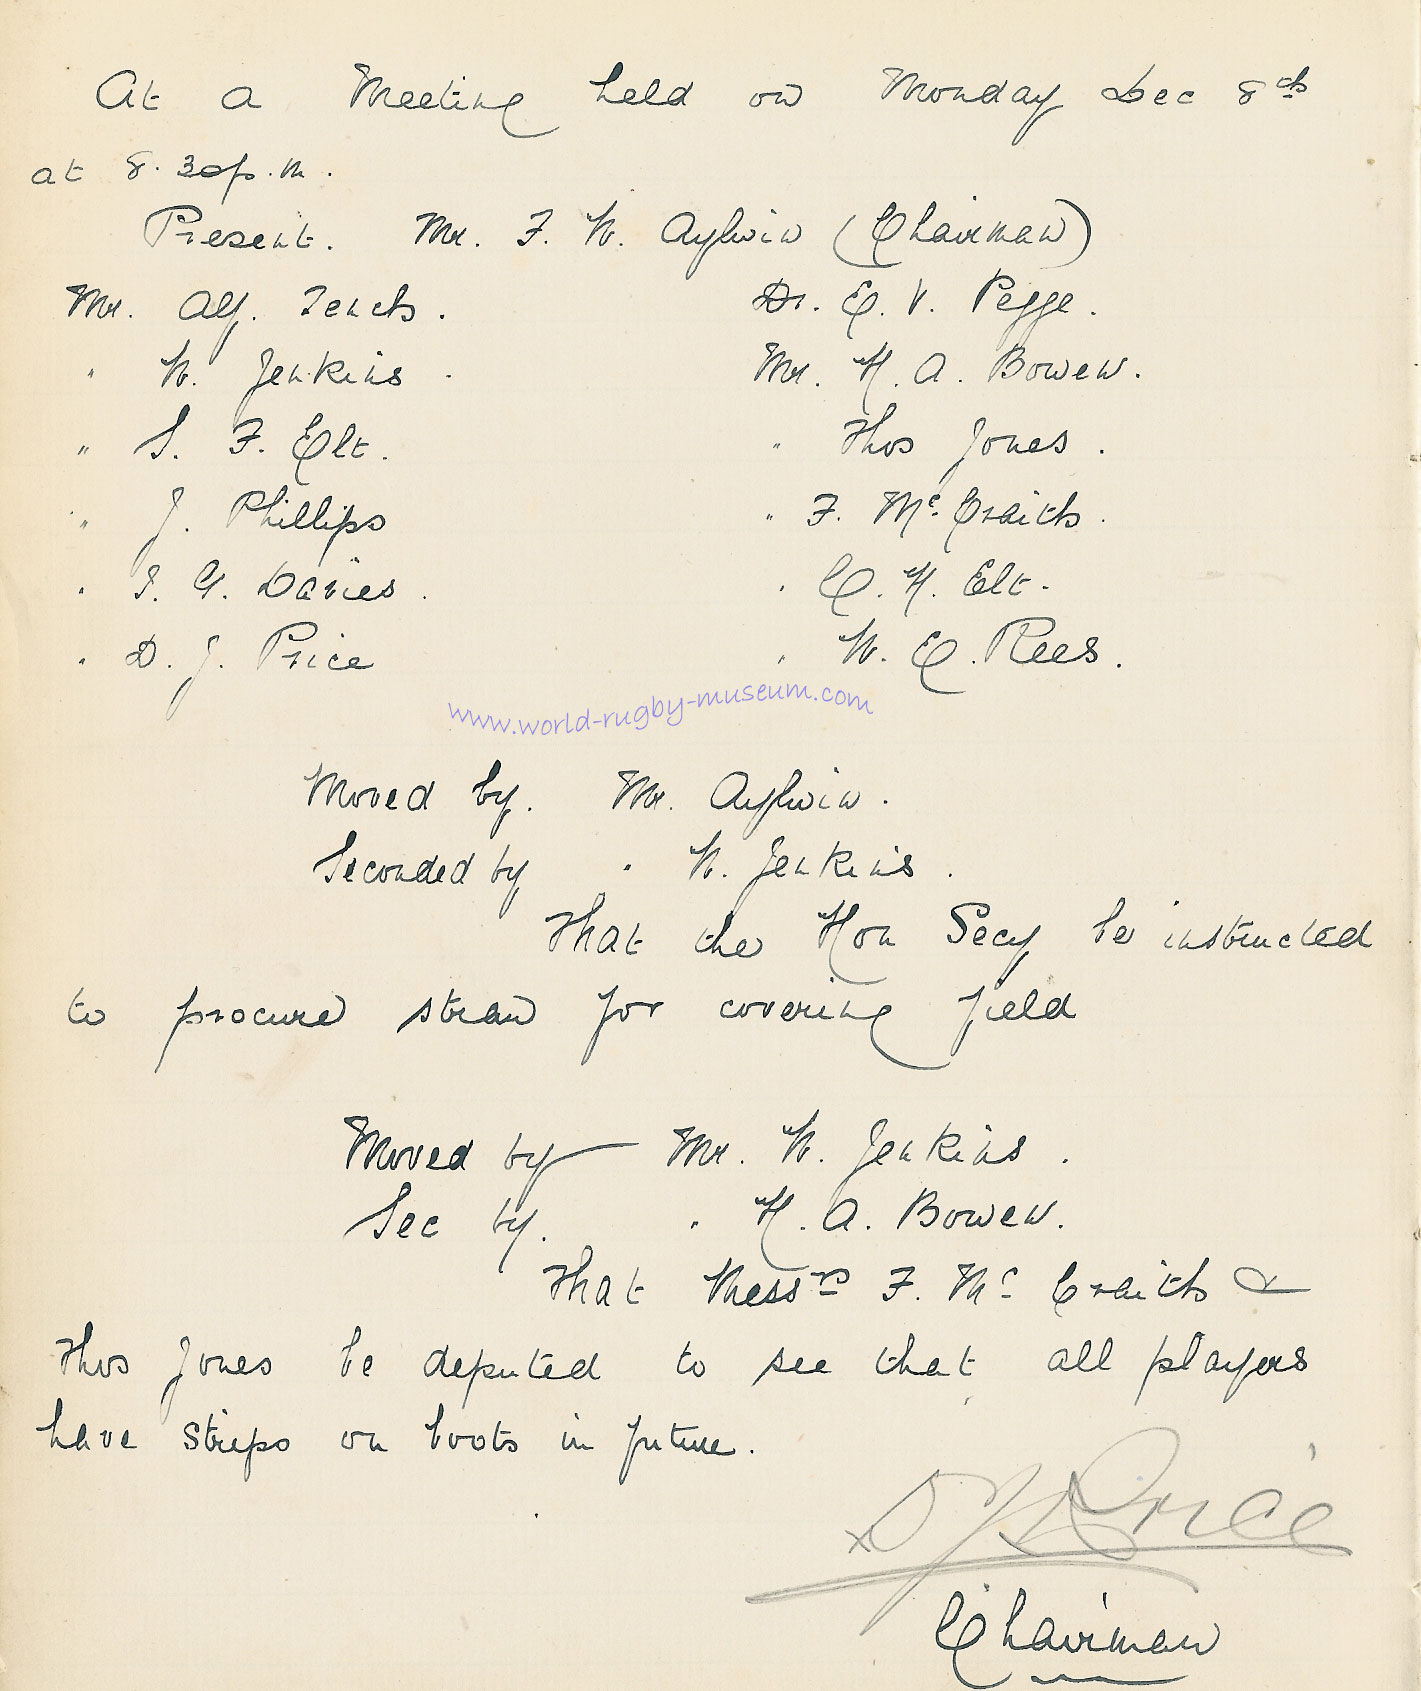 At a Meeting held on Monday Dec 8th
at 8.30p.m.
Present. Mr. F. W. Aylwin (Chairman)
Mr. Alf. Tench. Dr. E. V. Pegge.
" W. Jenkins. Mr. H. A. Bowen.
" S. F. Elt. " Thos Jones.
" J. Phillips " F. Mc. Craith.
" I. G. Davies. " C. H. Elt.
" D. J. Price " W. E. Rees.
www.world-rugby-museum.com
Moved by. Mr. Aylwin.
Seconded by " W. Jenkins.
That the Hon Secy be instructed
to procure straw for covering field
Moved by Mr. W. Jenkins.
Sec by. " H. A. Bowen.
That Messrs F. Mc Craith &
Thos Jones be deputed to see that all players
have strips on boots in future.
D J Price
Chairman